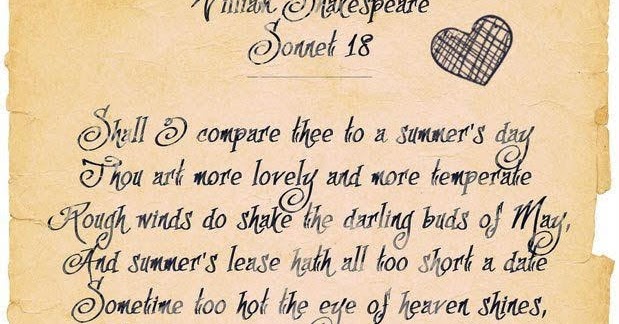 William Shakespeare
Sonnet 18
Shall I compare thee to a summer's day
Thou art more lovely and more temperate
Rough winds do shake the darling buds of May,
And summer's lease hath all too short a date
Sometime too hot the eye of heaven shines,